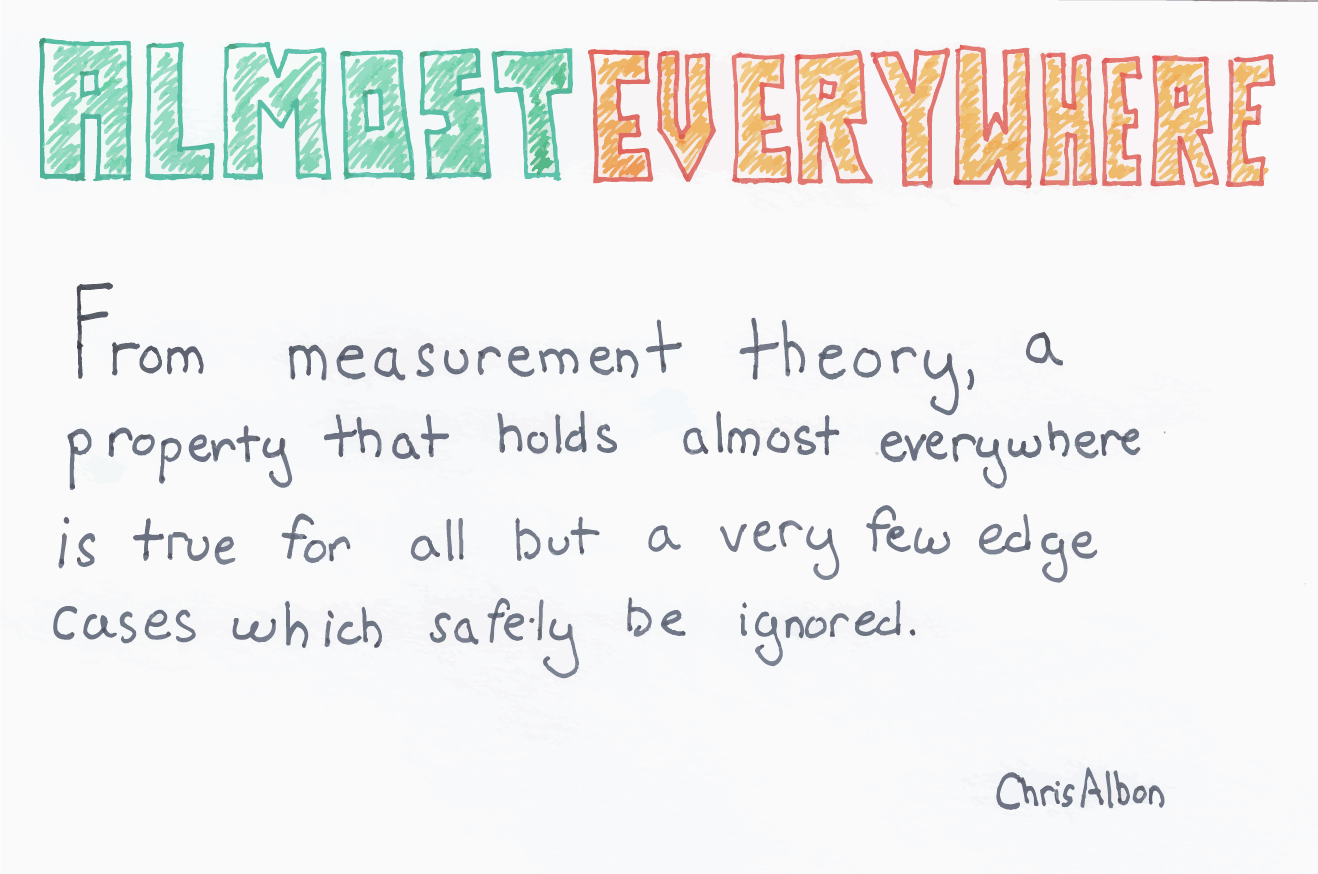 ALMOST EVERYWHERE
From measurement theory, a
property that holds almost everywhere
is true for all but a very few edge
cases which safely be ignored.
Chris Albon